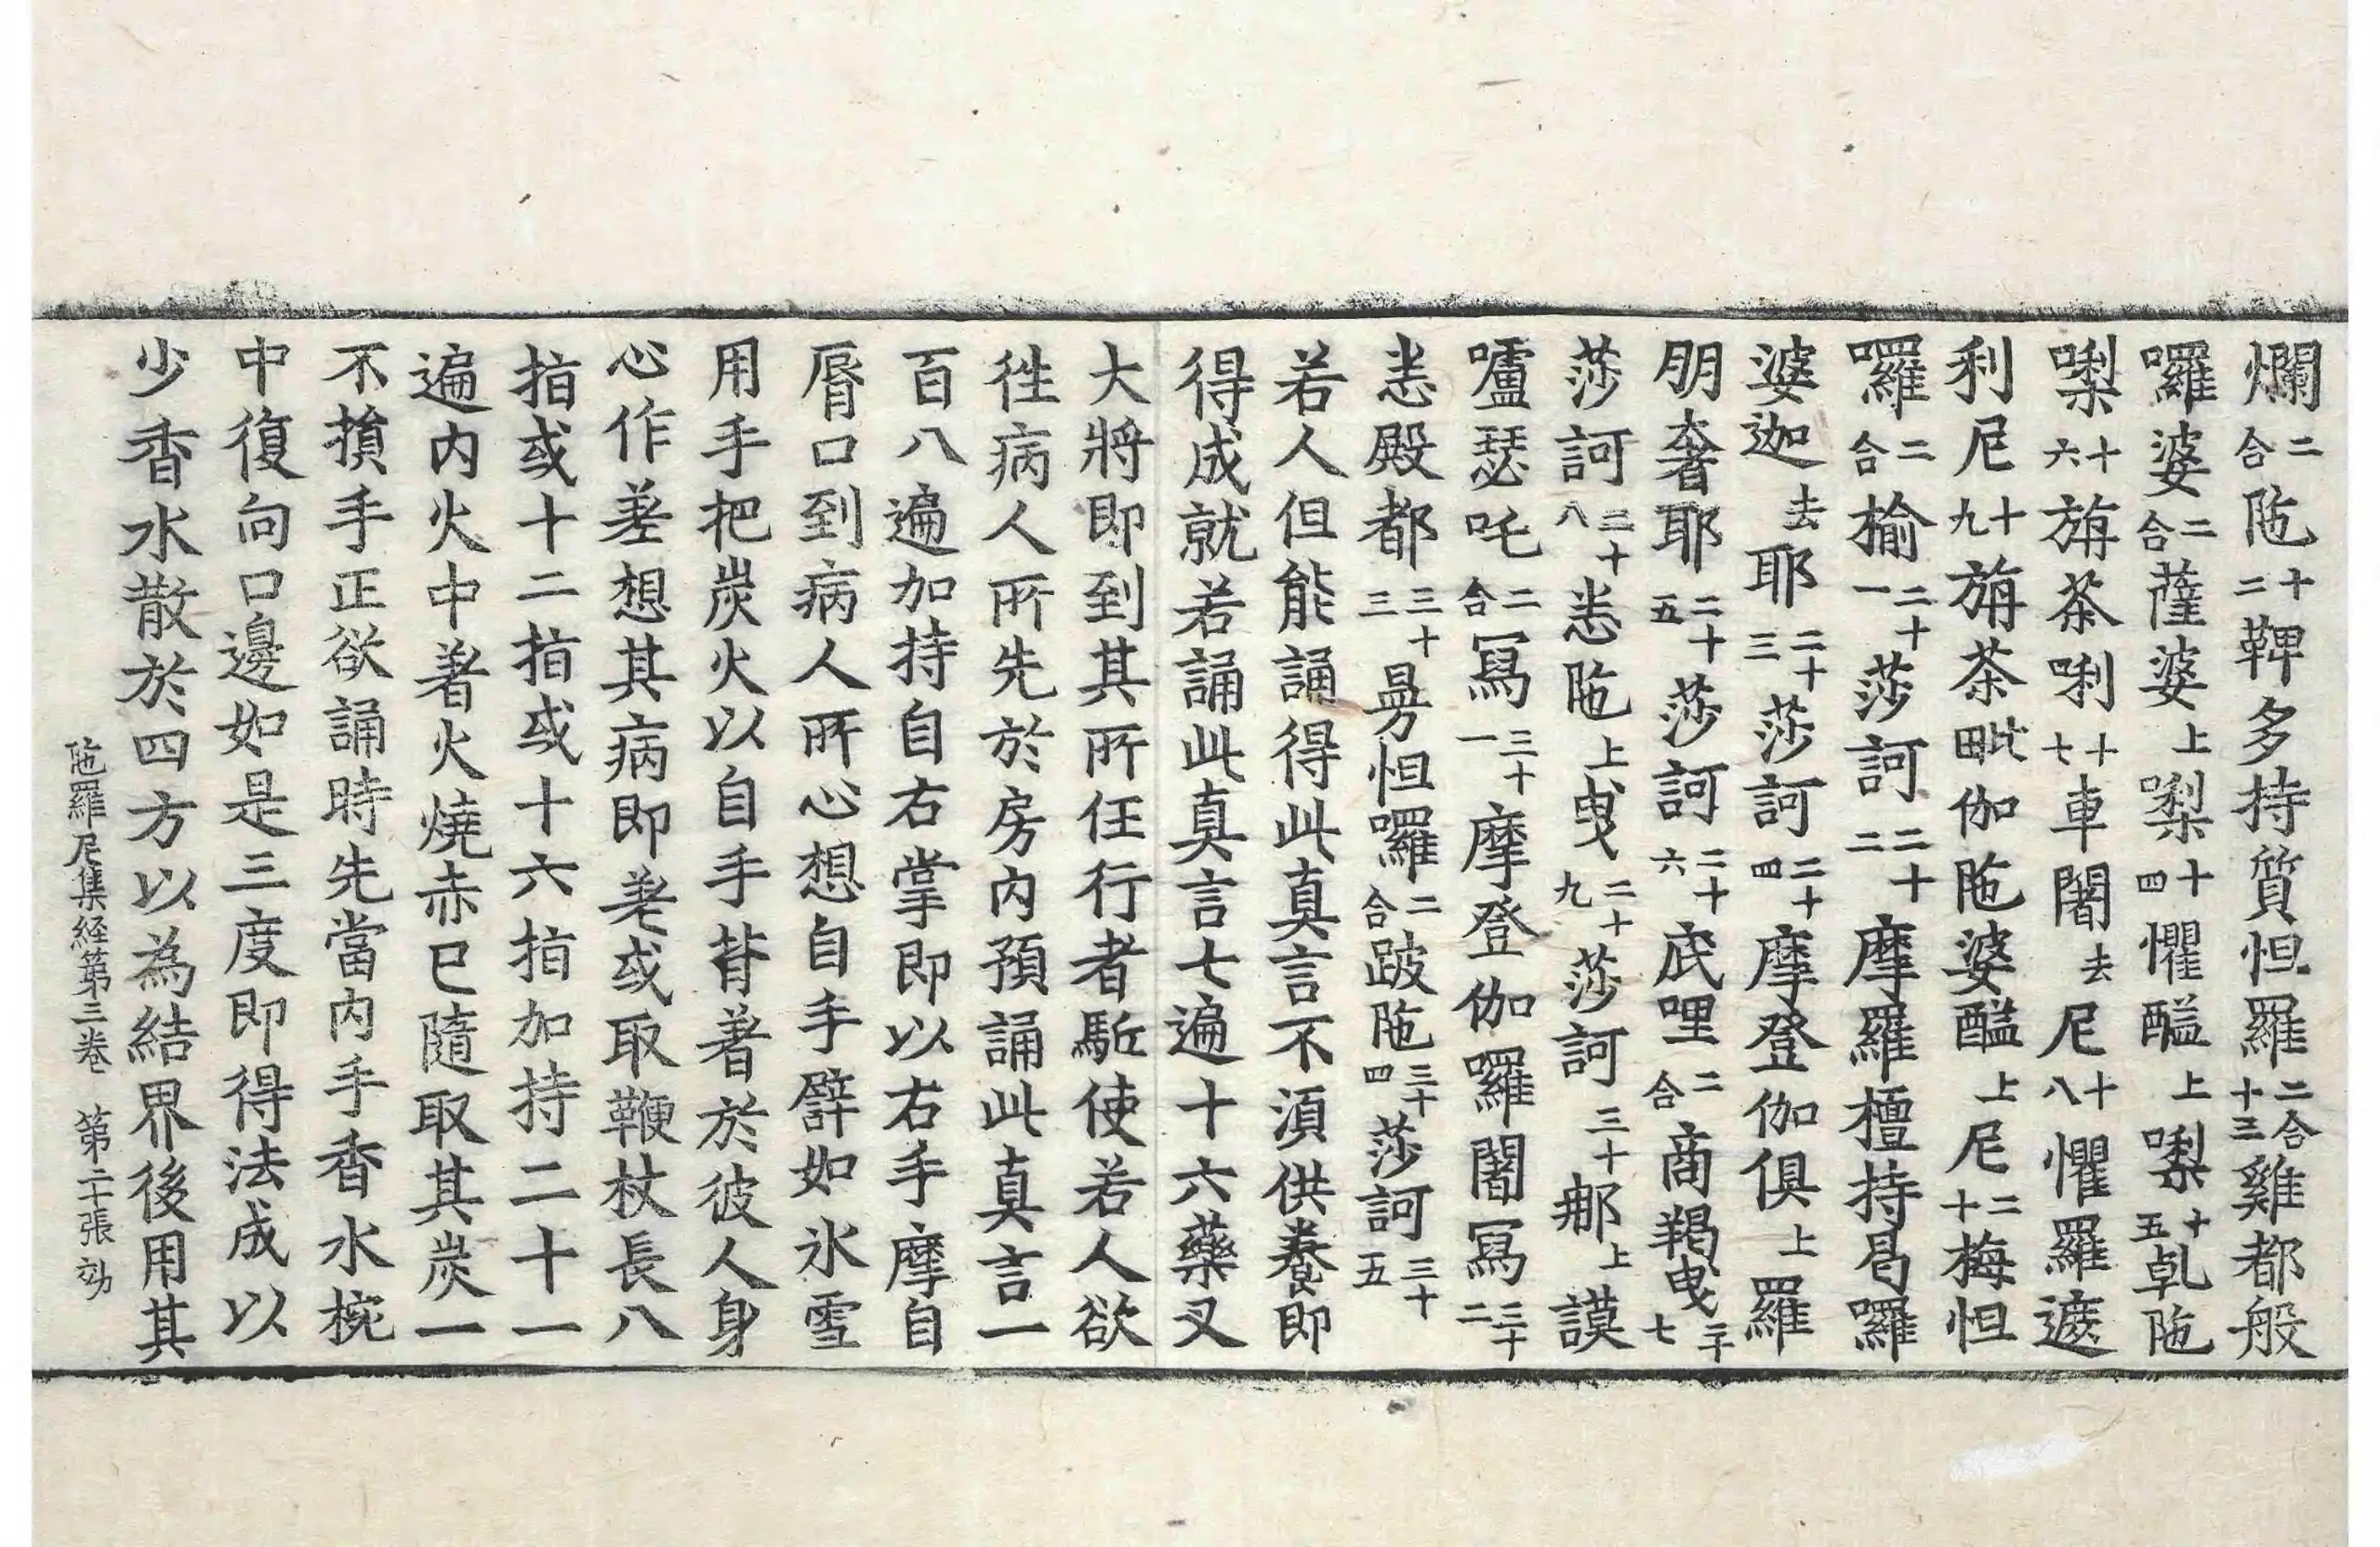 爛二合陁十二鞞多持質怛羅二合十三雞都般
囉婆二合薩婆上㗚十四懼醯上㗚十五乹陁
㗚十六旃茶唎十七車闍去尼十八懼羅遮
利尼十九旃茶毗伽陁婆醯上尼二十梅怛
囉二合揄二十一莎訶二十二摩羅檀持曷囉
婆迦去耶二十三莎訶二十四摩登伽俱上羅
朋奢耶二十五莎訶二十六底哩二合商羯曳二十七
莎訶二十八悉陁上曳二十九莎訶三十那上謨
嚧瑟吒二合寫三十一摩登伽囉闍寫三十二
悉殿都三十三曼怛囉二合跛陁三十四莎訶三十五
若人但能誦得此真言不湏供養即
得成就若誦此真言七遍十六藥叉
大將即到其所任行者駈使若人欲
徃病人所先於房內預誦此真言一
百八遍加持自右掌即以右手摩自
脣口到病人所心想自手譬如氷雪
用手把炭火以自手背著於彼人身
心作差想其病即差或取鞭杖長八
指或十二指或十六指加持二十一
遍內火中著火燒赤已隨取其炭一
不損手正欲誦時先當內手香水椀
中復向口邊如是三度即得法成以
少香水散於四方以為結界後用其
陁羅尼集経第三卷 第二十張 効